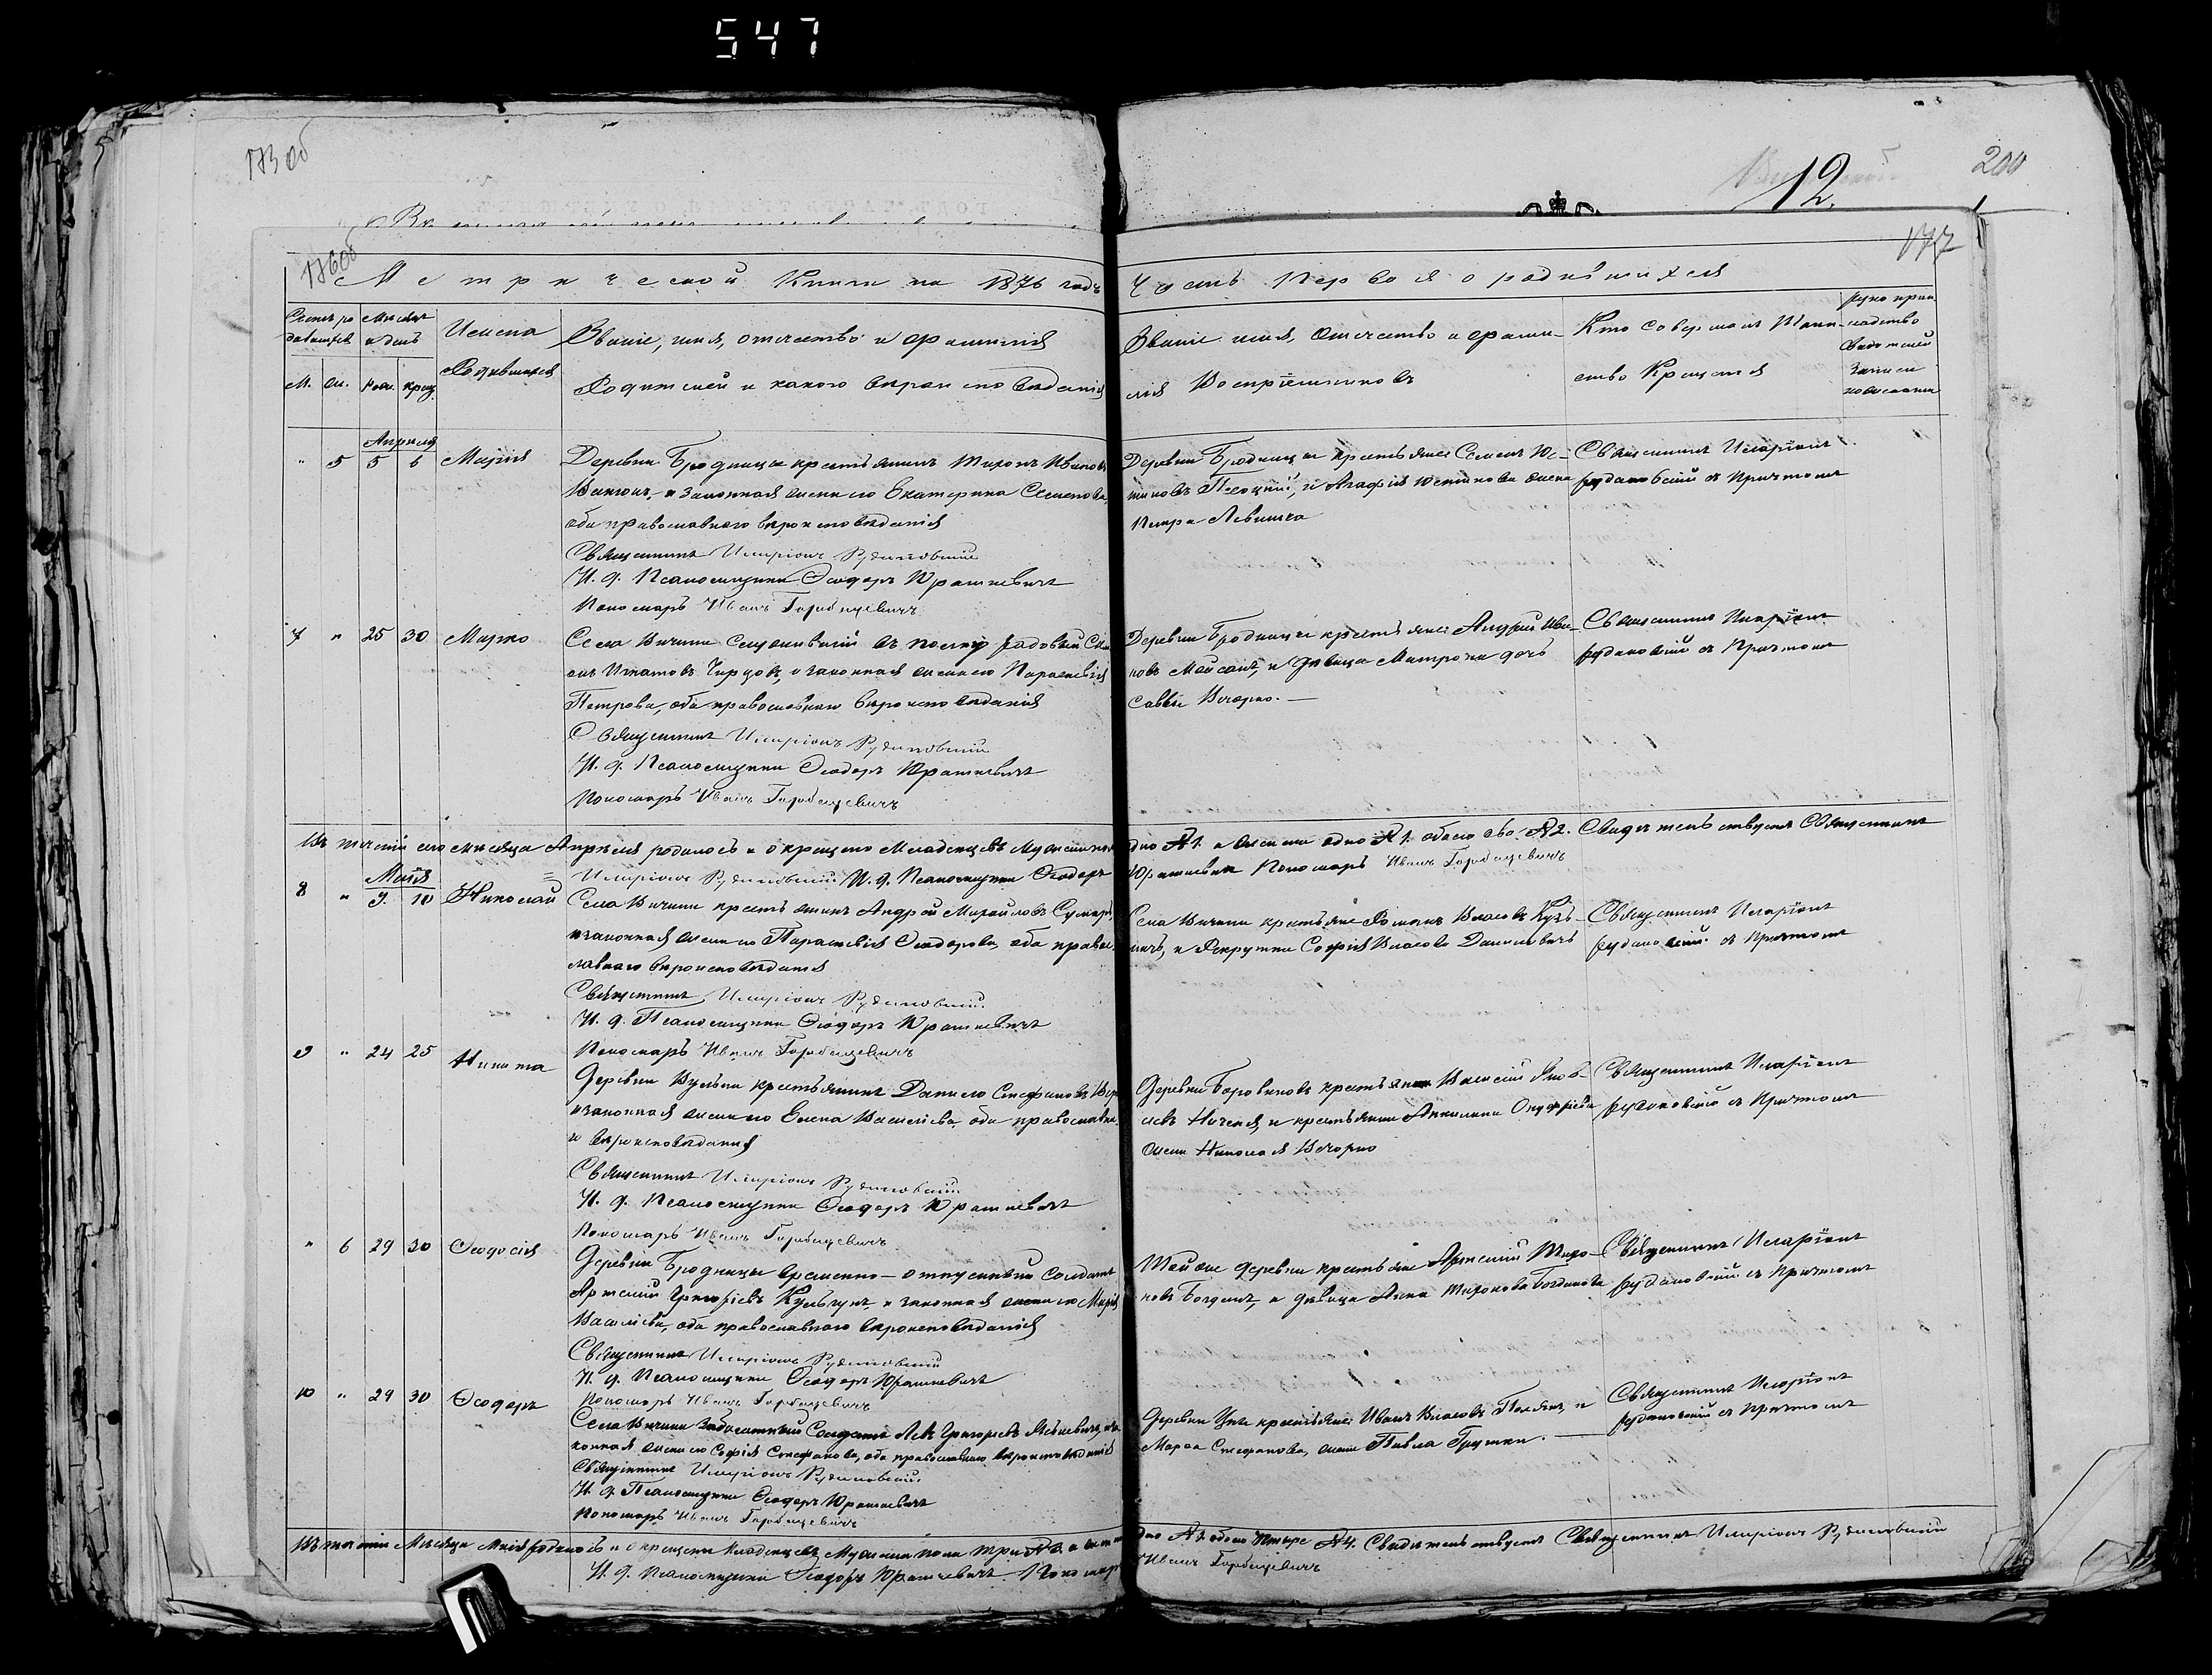 547
173 об
12.
200
176 об
177
Метрической Книги на 1876 годъ
Часть Первая о родившихся
Счетъ ро
давшихся
Мѣсяцъ
и день
Имена
Родившихся
Званіе, имя, отчество и фамилія
Родителей и какого вѣроисповѣданія
М.
Ж.
Рож.
крещ.
Званіе имя, отчество и фами-
лія Воспріемниковъ
Кто совершалъ Таин-
ство Крещенія
Руко прик
ладство
Свидѣтелей
Записи
по желанію
Апрѣля
" 5 5 6 Марія
Деревни Бродницы крестьянинъ Тихонъ Ивановъ
и законная жена его Екатерина Семенова,
оба православнаго вѣроисповѣданія
Священникъ Иларіонъ Рудановскій
И. д. Псаломщика Ѳеодоръ Юрашкевичъ
Пономарь Иванъ Горбацевичъ
Деревни Бродницы крестьяне: Семенъ Ю-
стиновъ и Агафія Юстинова жена
Петра Левшика
Священникъ Иларіонъ
Рудановскій съ Причтомъ
7 " 25 30 Марко
Села Вичини Служившій въ полку рядовый
Игнатовъ и законная жена его Параскевія
Петрова, оба православнаго вѣроисповѣданія
Священникъ Иларіонъ Рудановскій
И. д. Псаломщика Ѳеодоръ Юрашкевичъ
Пономарь Иванъ Горбацевичъ
Деревни Бродницы крестьяне: Андрей Ива-
новъ Мойсакъ, и дѣвица Матрона дочь
Саввы Вечорко. —
Священникъ Иларіонъ
Рудановскій съ Причтомъ
Въ теченіи сего мѣсяца Апрѣля родилось и окрещено Младенцевъ Мужеска пола
одно №1. и женска одно №1. обоего два №2. Свидѣтельствуетъ Священникъ
Иларіонъ Рудановскій И. д. Псаломщика Ѳеодоръ
Юрашкевичъ Пономарь Иванъ Горбацевичъ
Мая
8 " 9. 10 Николай
Села Вичини крестьянинъ Андрей Михайловъ
и законная жена его Параскевія Ѳеодорова оба правос-
лавнаго вѣроисповѣданія
Священникъ Иларіонъ Рудановскій.
И. д. Псаломщика Ѳеодоръ Юрашкевичъ
Пономарь Иванъ Горбацевичъ
Села Вичини крестьяне Романъ Власовъ Кузь-
мичъ, и Рекрутка Софія Власова Данилевичъ
Священникъ Иларіонъ
Рудановскій съ Причтомъ
9 " 24 25 Никита
Деревни Вульки крестьянинъ Данило Стефановъ
и законная жена его Елена Василіева оба православна-
го вѣроисповѣданія
Священникъ Иларіонъ Рудановскій
И. д. Псаломщика Ѳеодоръ Юрашкевичъ
Пономарь Иванъ Горбацевичъ
Деревни Боровиковъ крестьянинъ Василій Яков-
левъ и крестьянка Акилина Онуфріева
жена Николая Вечорко
Священникъ Иларіонъ
Рудановскій съ Причтомъ
" 6 29 30 Ѳеодосія
Деревни Бродницы временно-отпускный солдатъ
Артемій Григоріевъ и законная жена его Марія
Василіева, оба православнаго вѣроисповѣданія
Священникъ Иларіонъ Рудановскій
И. д. Псаломщика Ѳеодоръ Юрашкевичъ
Пономарь Иванъ Горбацевичъ
Той же деревни крестьяне Артемій Тихо-
новъ Богданъ, и дѣвица Анна Тихонова Богданова
Священникъ Иларіонъ
Рудановскій съ Причтомъ
10 " 29 30 Ѳеодоръ
Села Вичини Солдатъ Левъ Григорьевъ и за-
конная жена его Софія Стефанова, оба православнаго вѣроисповѣданія
Священникъ Иларіонъ Рудановскій.
И. д. Псаломщика Ѳеодоръ Юрашкевичъ
Пономарь Иванъ Горбацевичъ
Деревни крестьяне: Иванъ Власовъ и
Марѳа Стефанова, жена Павла Грушки. —
Священникъ Иларіонъ
Рудановскій съ Причтомъ
Въ теченіи Мѣсяца Мая родилось и окрещено Младенцевъ Мужеска пола три №3. и женска
одно №1. обоего четыре №4. Свидѣтельствуетъ Священникъ Иларіонъ Рудановскій
И. д. Псаломщика Ѳеодоръ Юрашкевичъ Пономарь
Иванъ Горбацевичъ